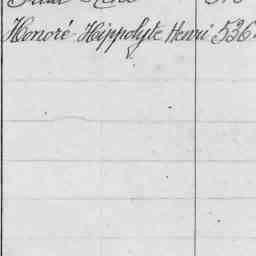 Honoré Hippolyte Henri 536